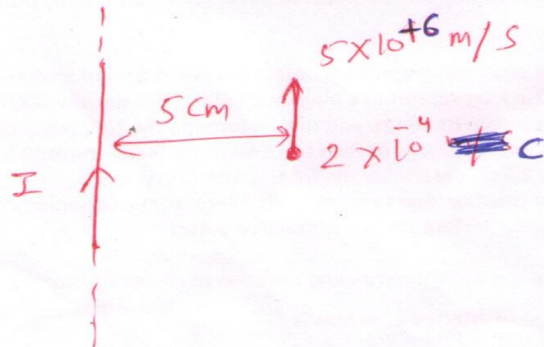 5×10⁺⁶ m/s
5 cm
2 × 10⁻⁴ C
I